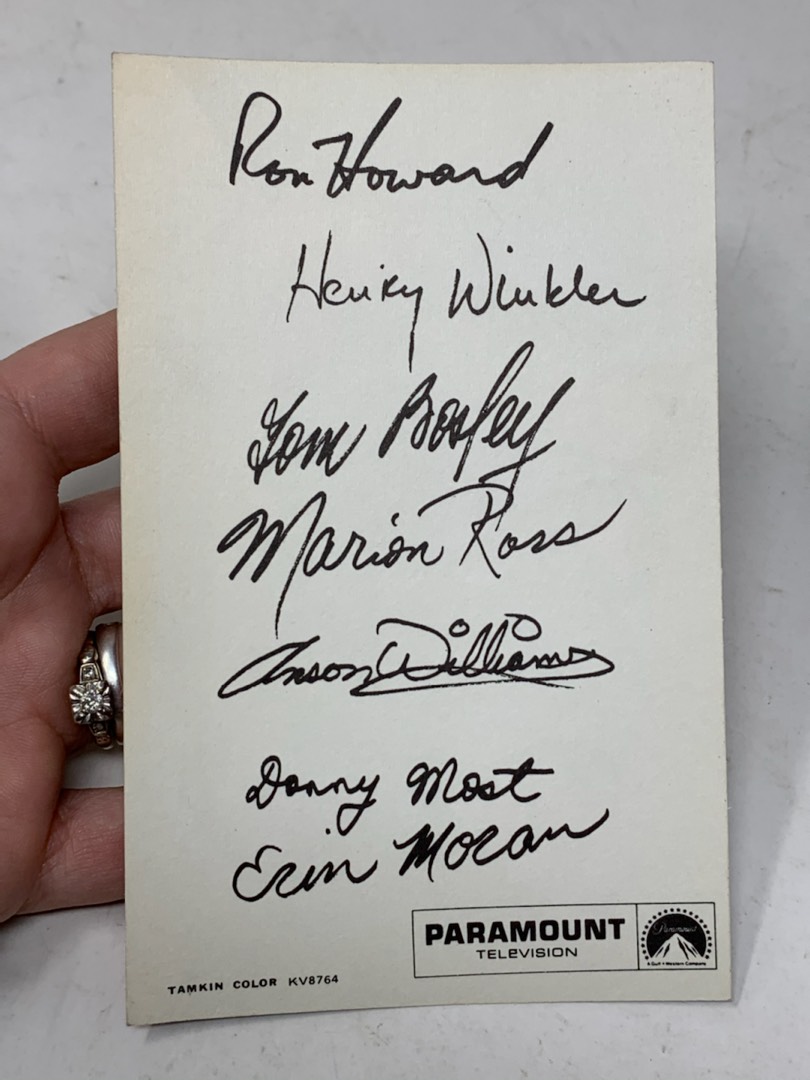 Ron Howard
Henry Winkler
Tom Bosley
Marion Ross
Anson Williams
Donny Most
Erin Moran
PARAMOUNT
TELEVISION
Paramount
A Gulf + Western Company
TAMKIN COLOR KV8764